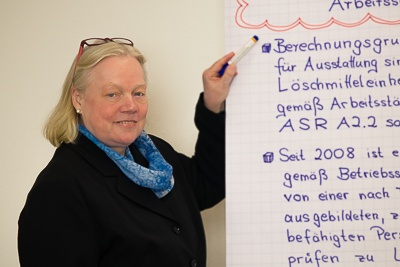 Arbeitss
Berechnungsgru
für Ausstattung sin
Löschmitteleinhe
gemäß Arbeitsstä
ASR A2.2 so
Seit 2008 ist e
gemäß Betriebss
von einer nach T
ausgebildeten, z
befähigten Pers
prüfen zu l